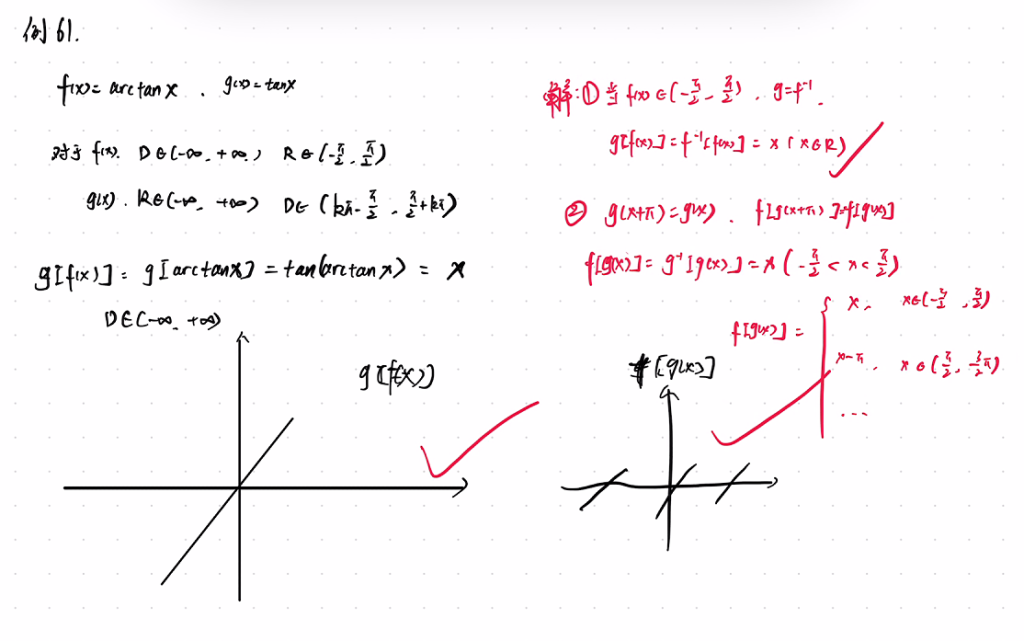 例 61.
f(x)= arctan x . g(x)= tanx
对于 f(x). D∈(-∞, +∞) R∈(-π/2, π/2)
g(x). R∈(-∞, +∞) D∈ (kπ-π/2, π/2+kπ)
g[f(x)] = g[arctanx] = tan(arctan x) = x
D∈(-∞, +∞)
g[f(x)]
解: ① 当 f(x)∈(-π/2, π/2), g=f⁻¹.
g[f(x)]=f⁻¹[f(x)] = x (x∈R)
② g(x+π)=g(x). f[g(x+π)]=f[g(x)]
f[g(x)]= g⁻¹[g(x)]=x (-π/2 < x < π/2)
f[g(x)] = { x, x∈(-π/2, π/2)
x-π, x∈(π/2, 3/2π)
...
f[g(x)]